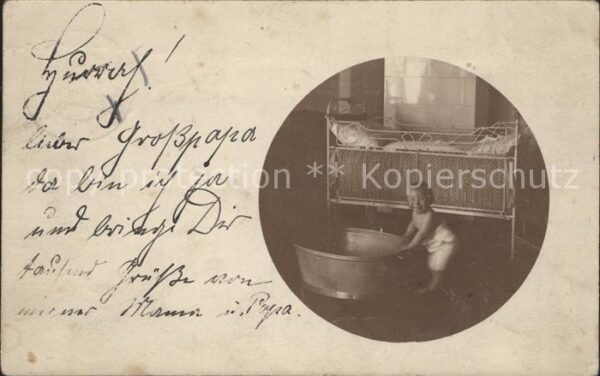 Hurrah!
lieber Großpapa
da bin ich ja
und bringe Dir
tausend Grüße von
meiner Mama u. Papa.
copyright protection ** Kopierschutz